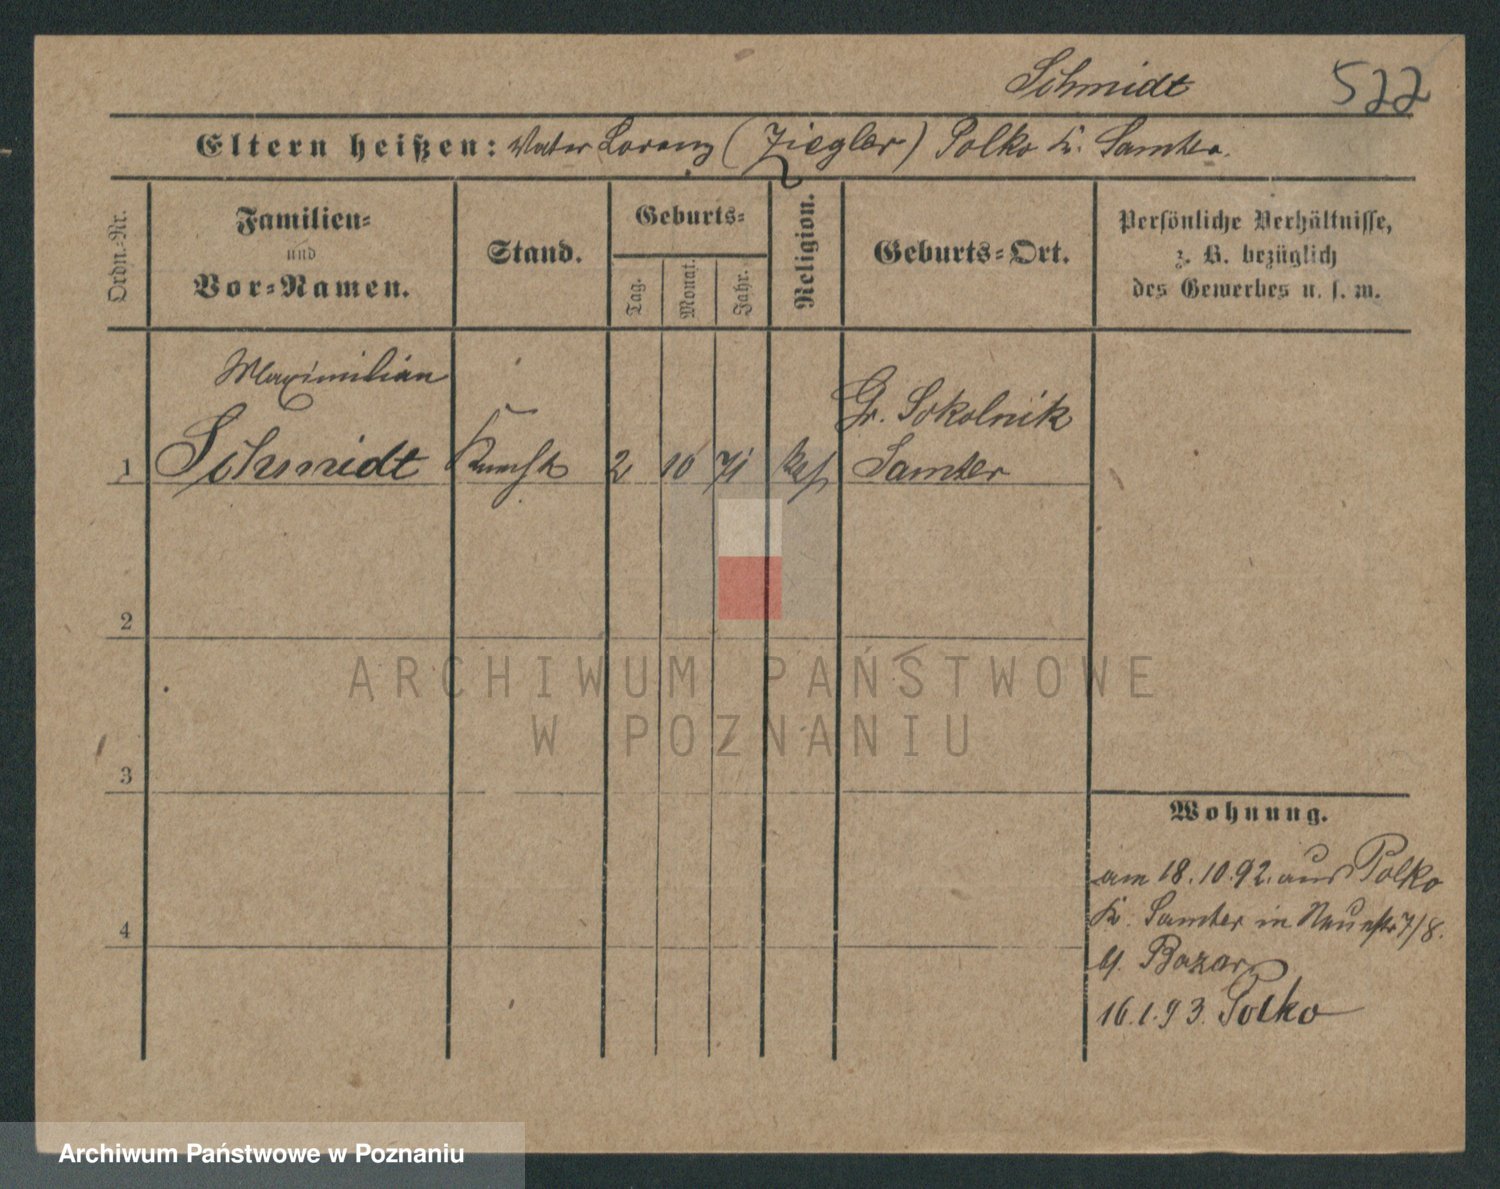 Schmidt 522
Eltern heißen: Vater Lorenz (Ziegler) Polko K. Samter.
Ordn.-Nr.
Familien-
und
Vor-Namen.
Stand.
Geburts-
Tag.
Monat.
Jahr.
Religion.
Geburts-Ort.
Persönliche Verhältnisse,
z. B. bezüglich
des Gewerbes u. s. w.
Maximilian
1 Schmidt Knecht 2 10 71 Gr. Sokolnik
Samter
2
3
4
Wohnung.
am 18.10.92. aus Polko
K. Samter in Neuestr 7/8.
b. Bazar
16.1.93. Polko
ARCHIWUM PAŃSTWOWE
W POZNANIU
Archiwum Państwowe w Poznaniu